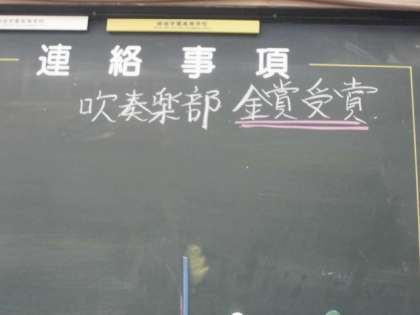 連絡事項
吹奏楽部 金賞受賞